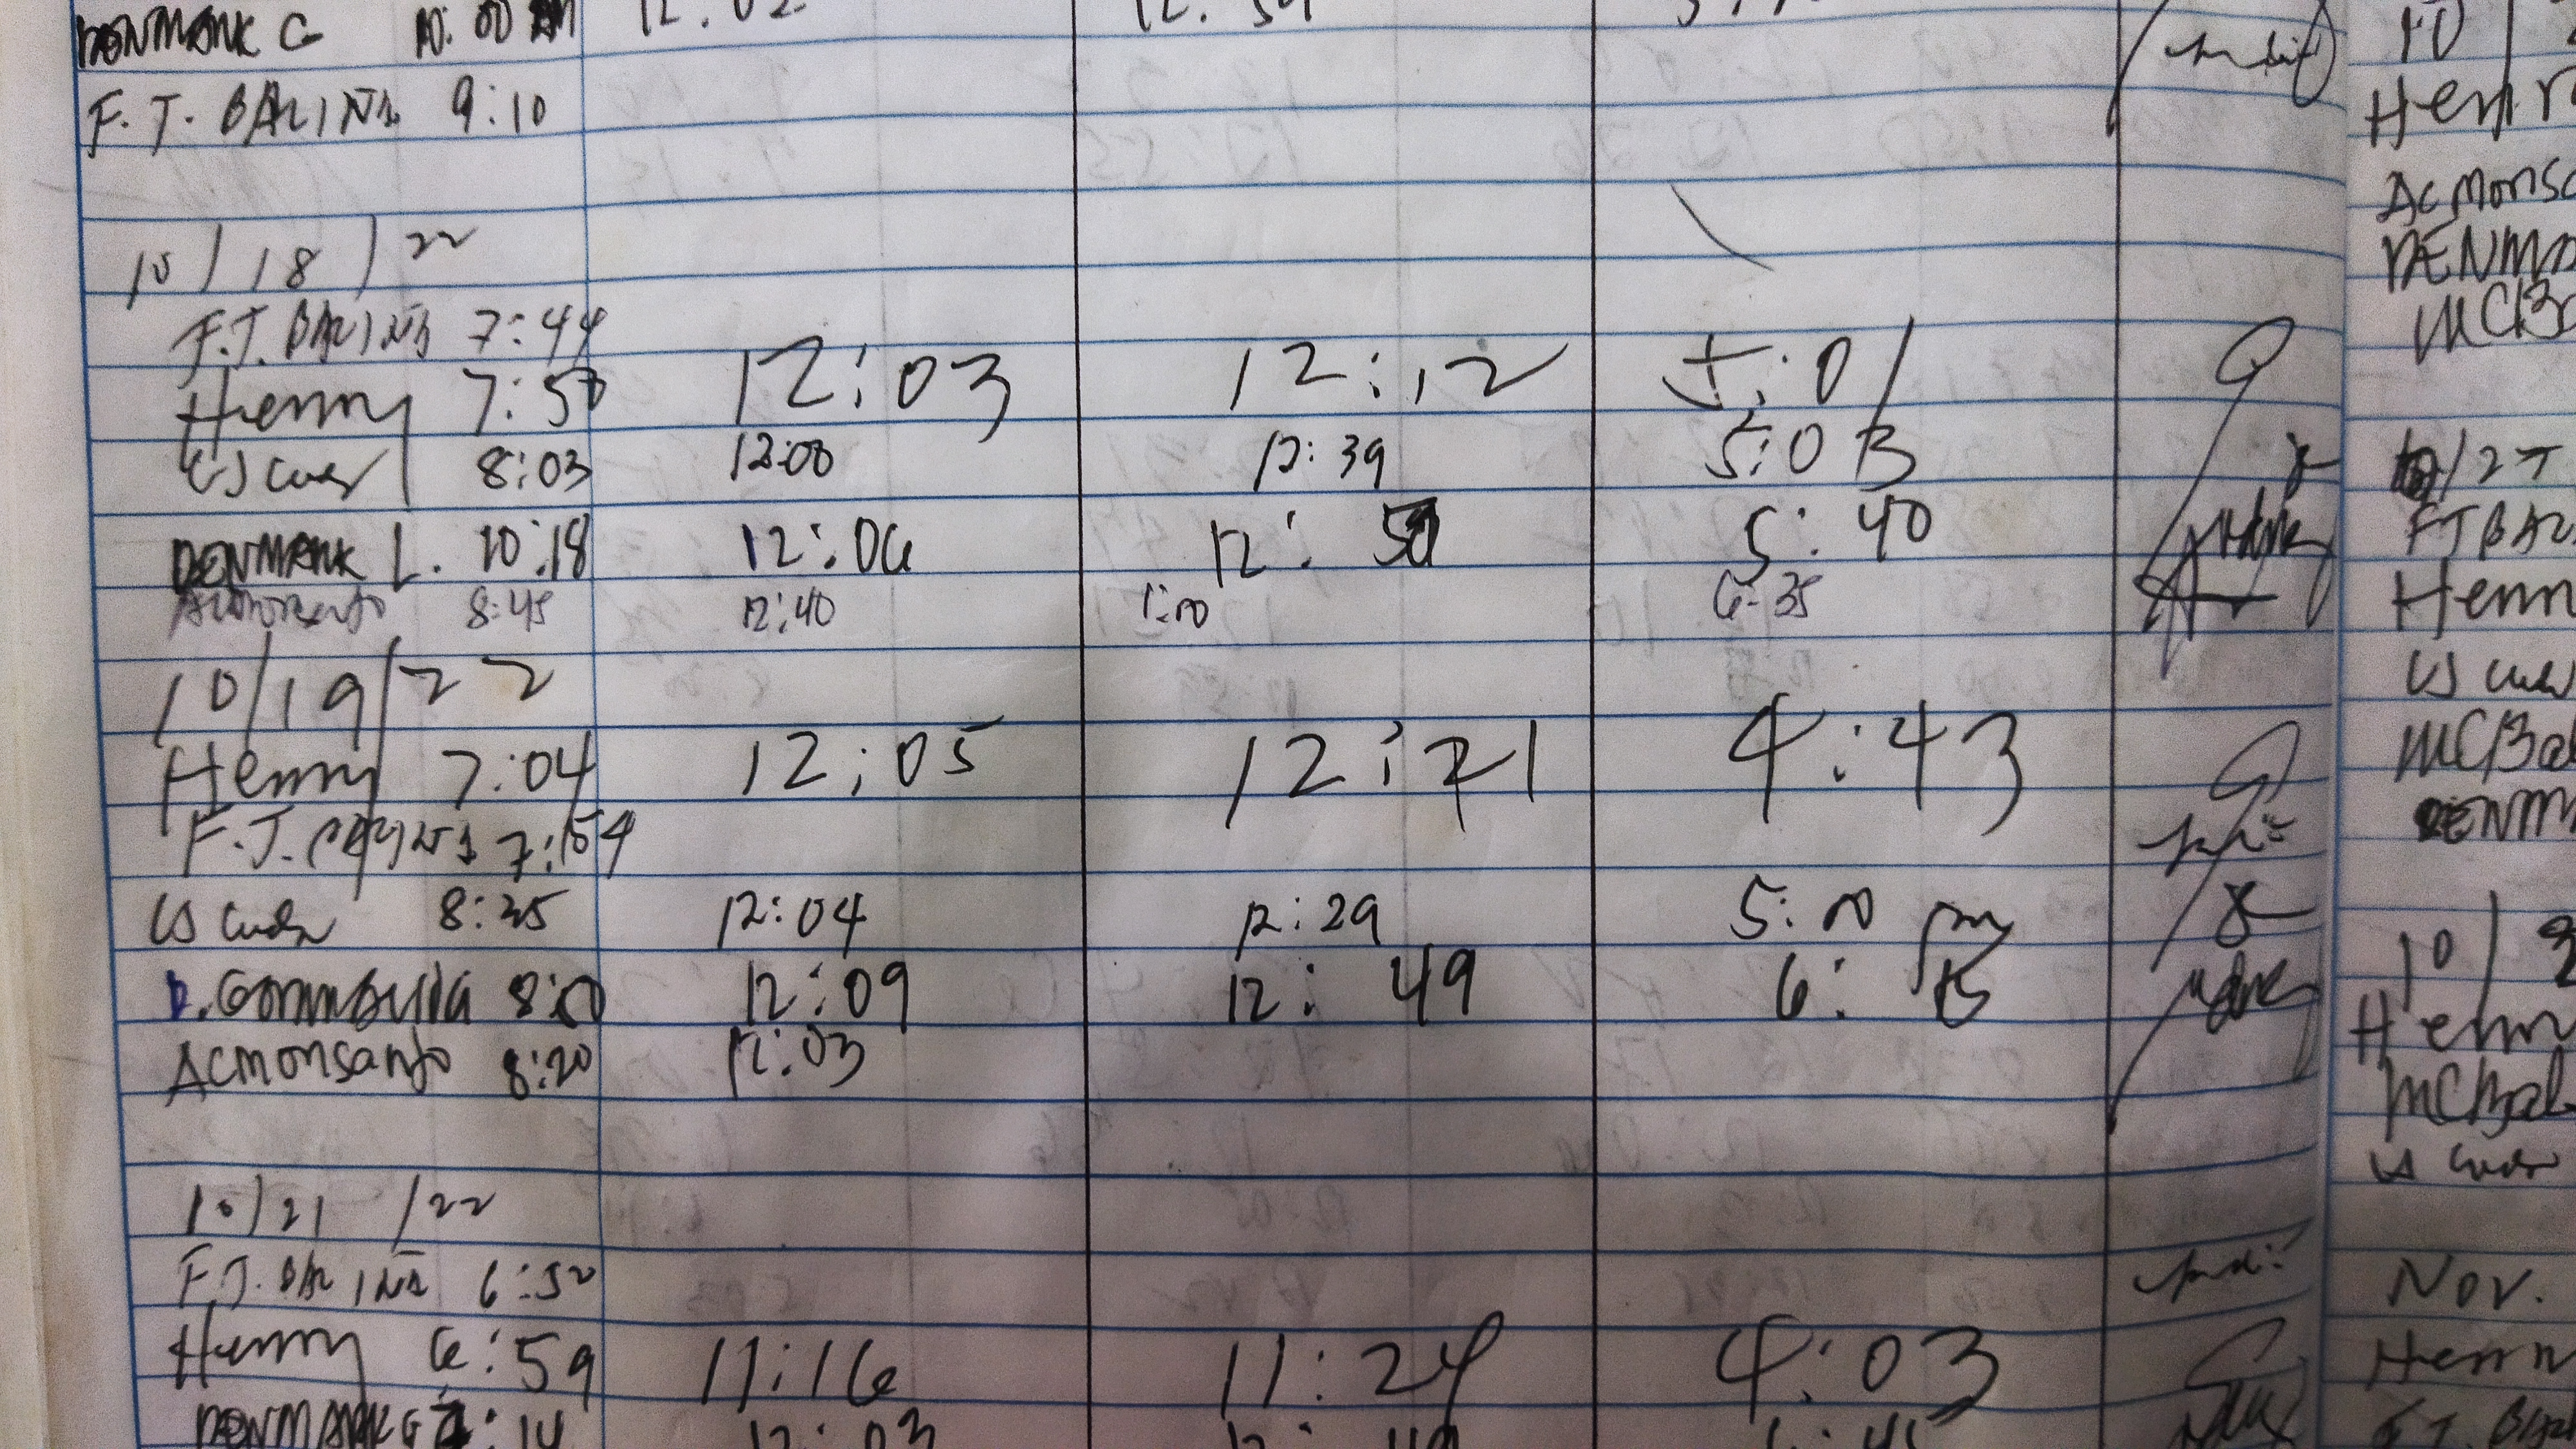 DENMARK G 10:00 AM 12:02
F.T. BALINA 9:10
10/18/22
F.T. BALINA 7:44
Henry 7:50 12:03 12:12 5:01
CS 8:03 12:00 12:39 5:03
DENMARK L. 10:18 12:06 12: 5:40
Acmonsanto 8:45 12:40 1:00 6:35
10/19/22
Henry 7:04 12:05 12:21 4:43
F.T. 7:54
CS 8:25 12:04 12:29 5:00 pm
D. 8:00 12:09 12:49 6:15
Acmonsanto 8:20 12:03
10/21/22
F.T. BALINA 6:50
Henry 6:59 11:16 11:24 4:03
DENMARK G :14 12:03 12:49
10/
Henr
Acmonsa
DENMA
MCBa
10/27
FT BAL
Henn
CS
MCBal
DENM
10/
Henn
MCBal
CS
Nov.
Henn
F.T. BAL